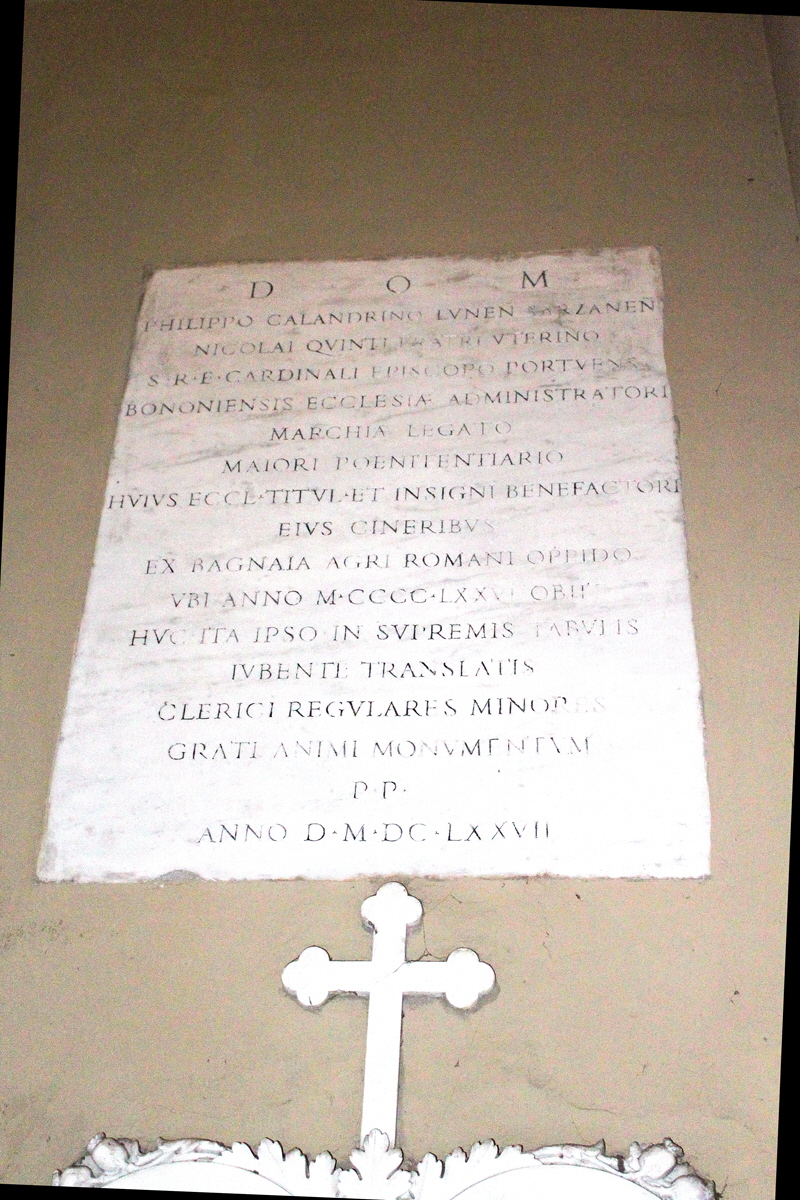 D O M
PHILIPPO CALANDRINO LVNEN SARZANEN
NICOLAI QVINTI FRATRI VTERINO
S·R·E·CARDINALI EPISCOPO PORTVENSI
BONONIENSIS ECCLESIÆ ADMINISTRATORI
MARCHIÆ LEGATO
MAIORI POENITENTIARIO
HVIVS ECCL·TITVL·ET INSIGNI BENEFACTORI
EIVS CINERIBVS
EX BAGNAIA AGRI ROMANI OPPIDO
VBI ANNO M·CCCC·LXXVI OBIIT
HVC ITA IPSO IN SVPREMIS TABVLIS
IVBENTE TRANSLATIS
CLERICI REGVLARES MINORES
GRATI ANIMI MONVMENTVM
P·P·
ANNO D·M·DC·LXXVII